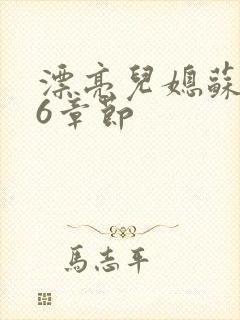 漂亮兒媳蘇
6章節
馬志平